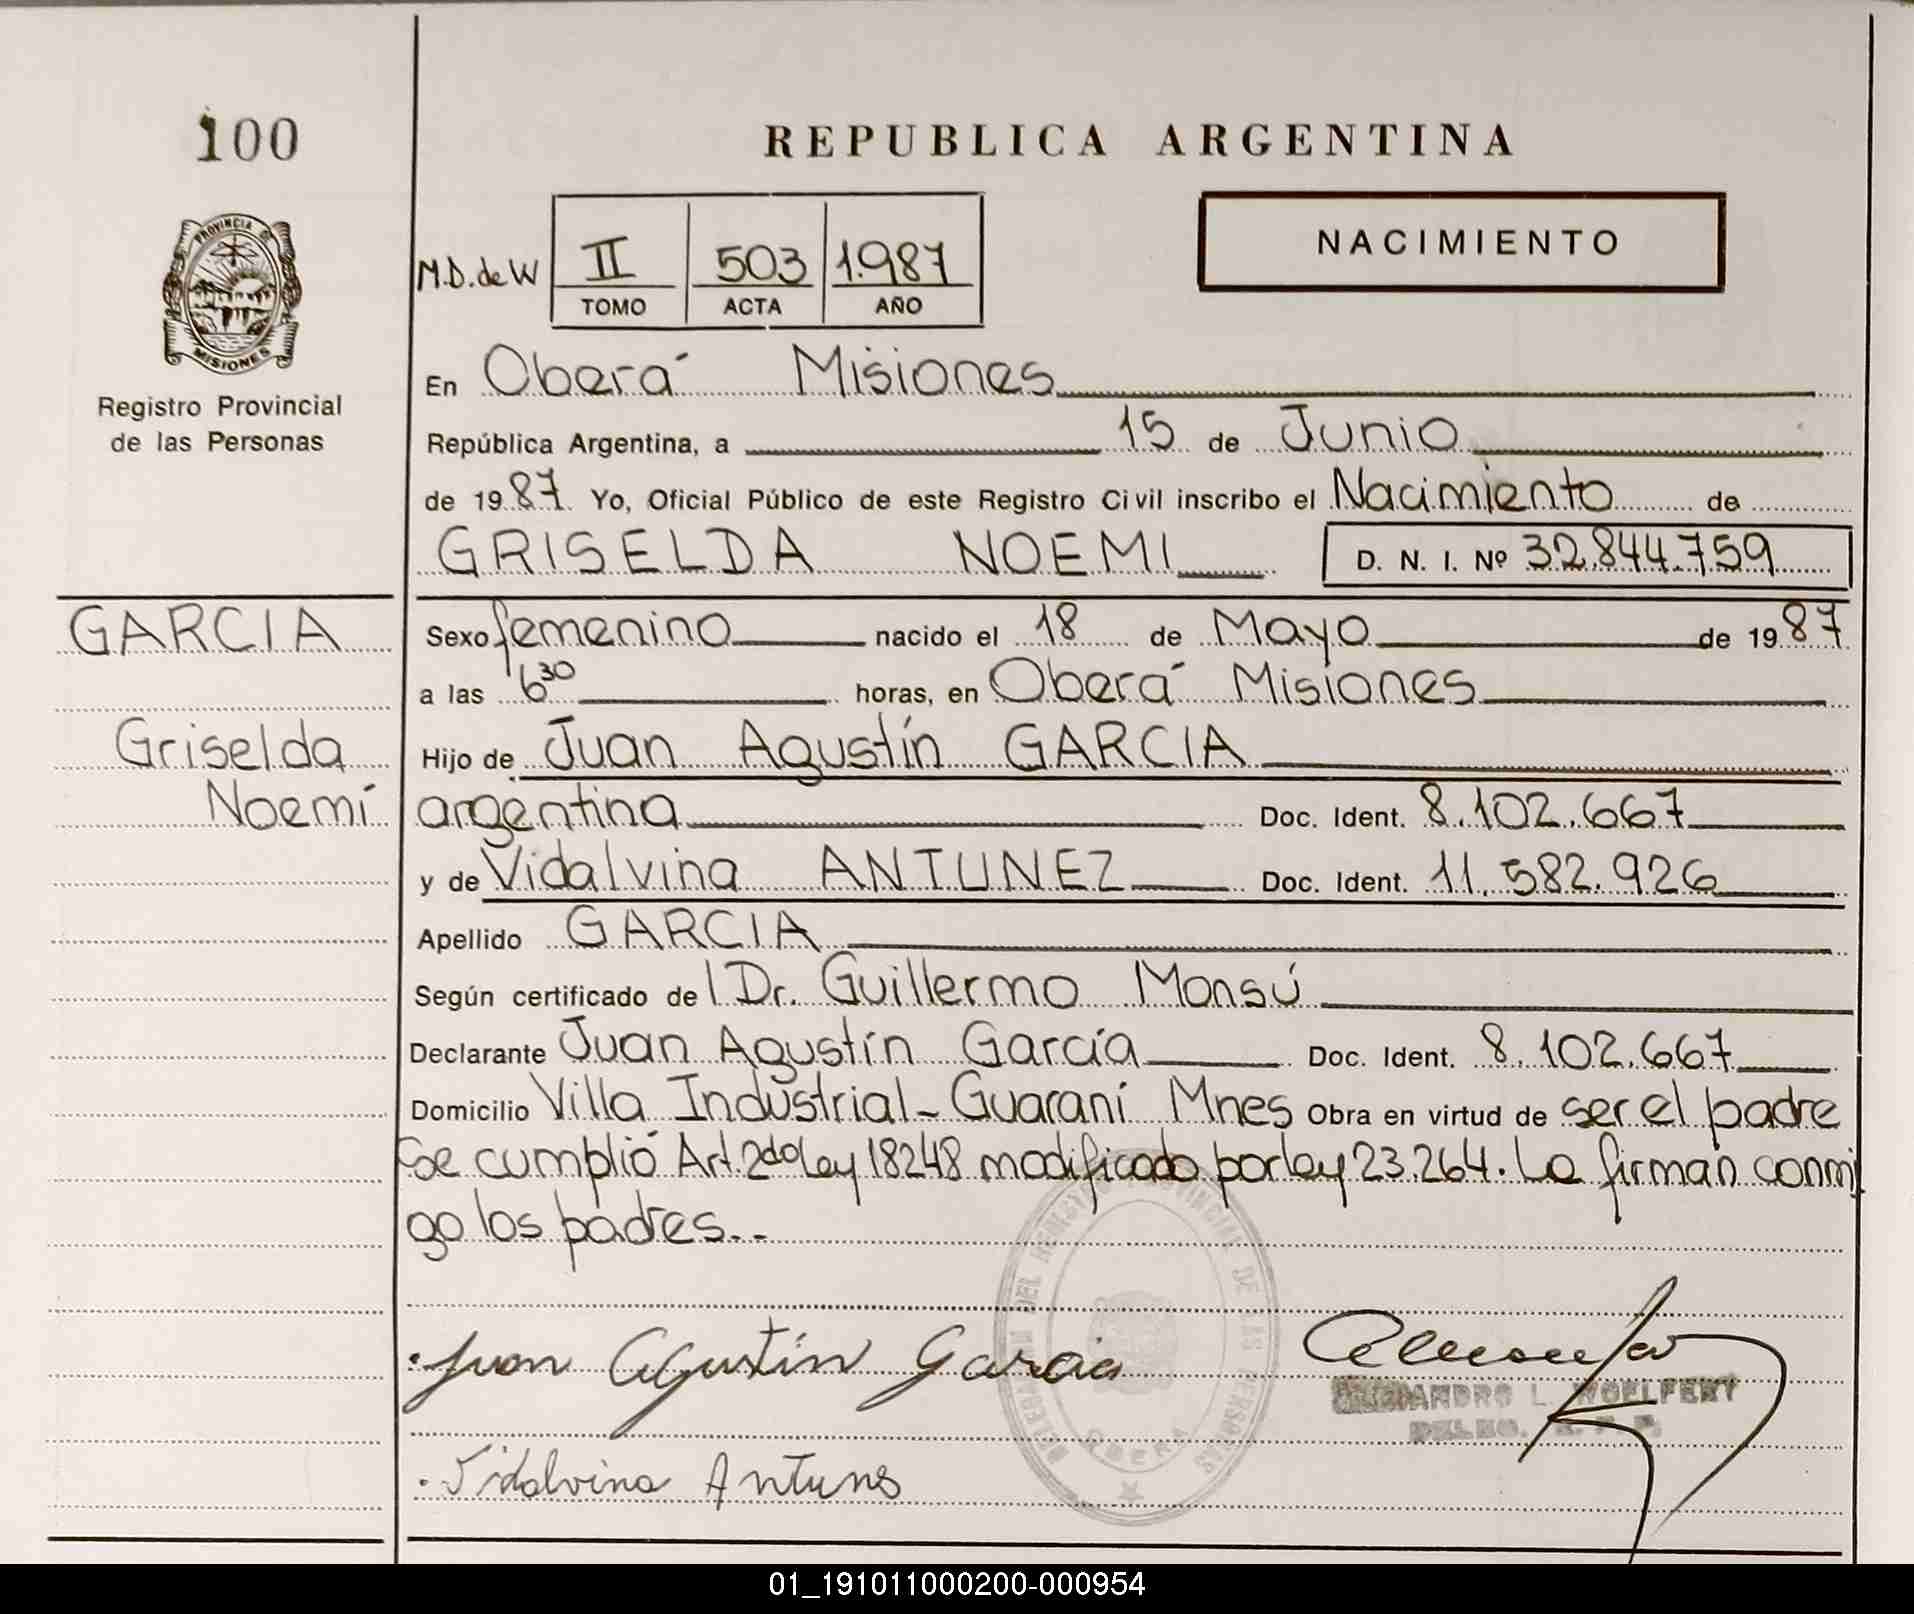 100
REPUBLICA ARGENTINA
PROVINCIA DE
MISIONES
Registro Provincial
de las Personas
M.D. de W
II 503 1.987
TOMO ACTA AÑO
NACIMIENTO
En Oberá Misiones
República Argentina, a 15 de Junio
de 1987. Yo, Oficial Público de este Registro Civil inscribo el Nacimiento de
GRISELDA NOEMI D. N. I. Nº 32.844.759
GARCIA
Griselda
Noemí
Sexo femenino nacido el 18 de Mayo de 1987
a las 6 30 horas, en Oberá Misiones
Hijo de Juan Agustín GARCIA
argentina Doc. Ident. 8.102.667
y de Vidalvina ANTUNEZ Doc. Ident. 11.582.926
Apellido GARCIA
Según certificado de l Dr. Guillermo Monsú
Declarante Juan Agustín García Doc. Ident. 8.102.667
Domicilio Villa Industrial - Guaraní Mnes Obra en virtud de ser el padre
Se cumplió Art. 2do Ley 18248 modificado por ley 23.264. La firman conmi
go los padres..-
Juan Agustín Garcia
L. WOELFERT
Vidalvina Antunes
DEL REGISTRO PROVINCIAL DE LAS PERSONAS
OBERA
01_191011000200-000954